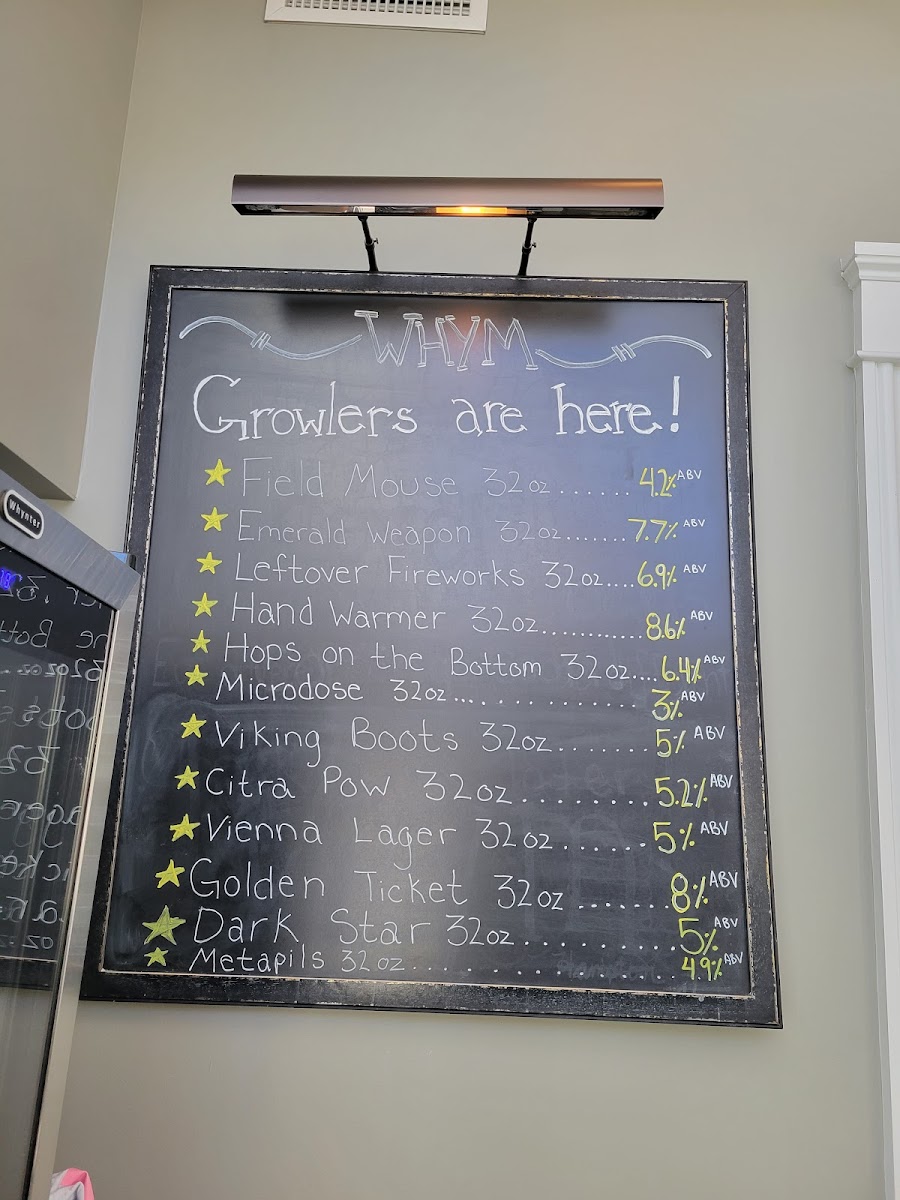 WHYM
Growlers are here!
Field Mouse 32oz....... 4.2% ABV
Emerald Weapon 32oz....... 7.7% ABV
Leftover Fireworks 32oz.... 6.9% ABV
Hand Warmer 32oz............ 8.6% ABV
Hops on the Bottom 32oz.... 6.4% ABV
Microdose 32oz................ 3% ABV
Viking Boots 32oz....... 5% ABV
Citra Pow 32oz........ 5.2% ABV
Vienna Lager 32oz...... 5% ABV
Golden Ticket 32oz ...... 8% ABV
Dark Star 32oz.......... 5% ABV
Metapils 32oz.................. 4.9% ABV
Whynter